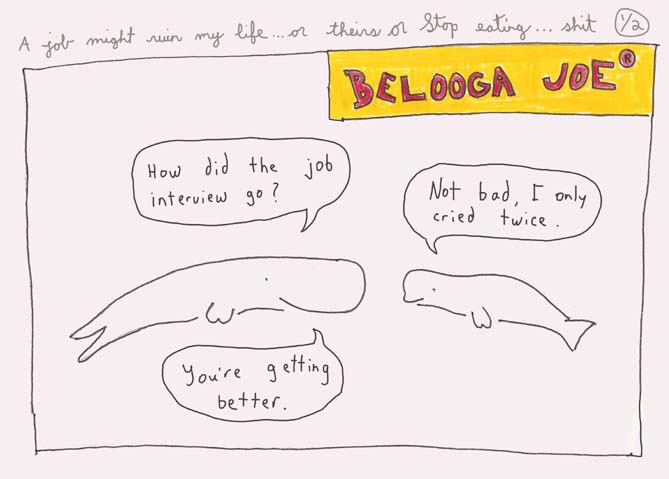 A job might ruin my life...or theirs or Stop eating... shit 1/2
BELOOGA JOE®
How did the job
interview go?
Not bad, I only
cried twice.
You're getting
better.